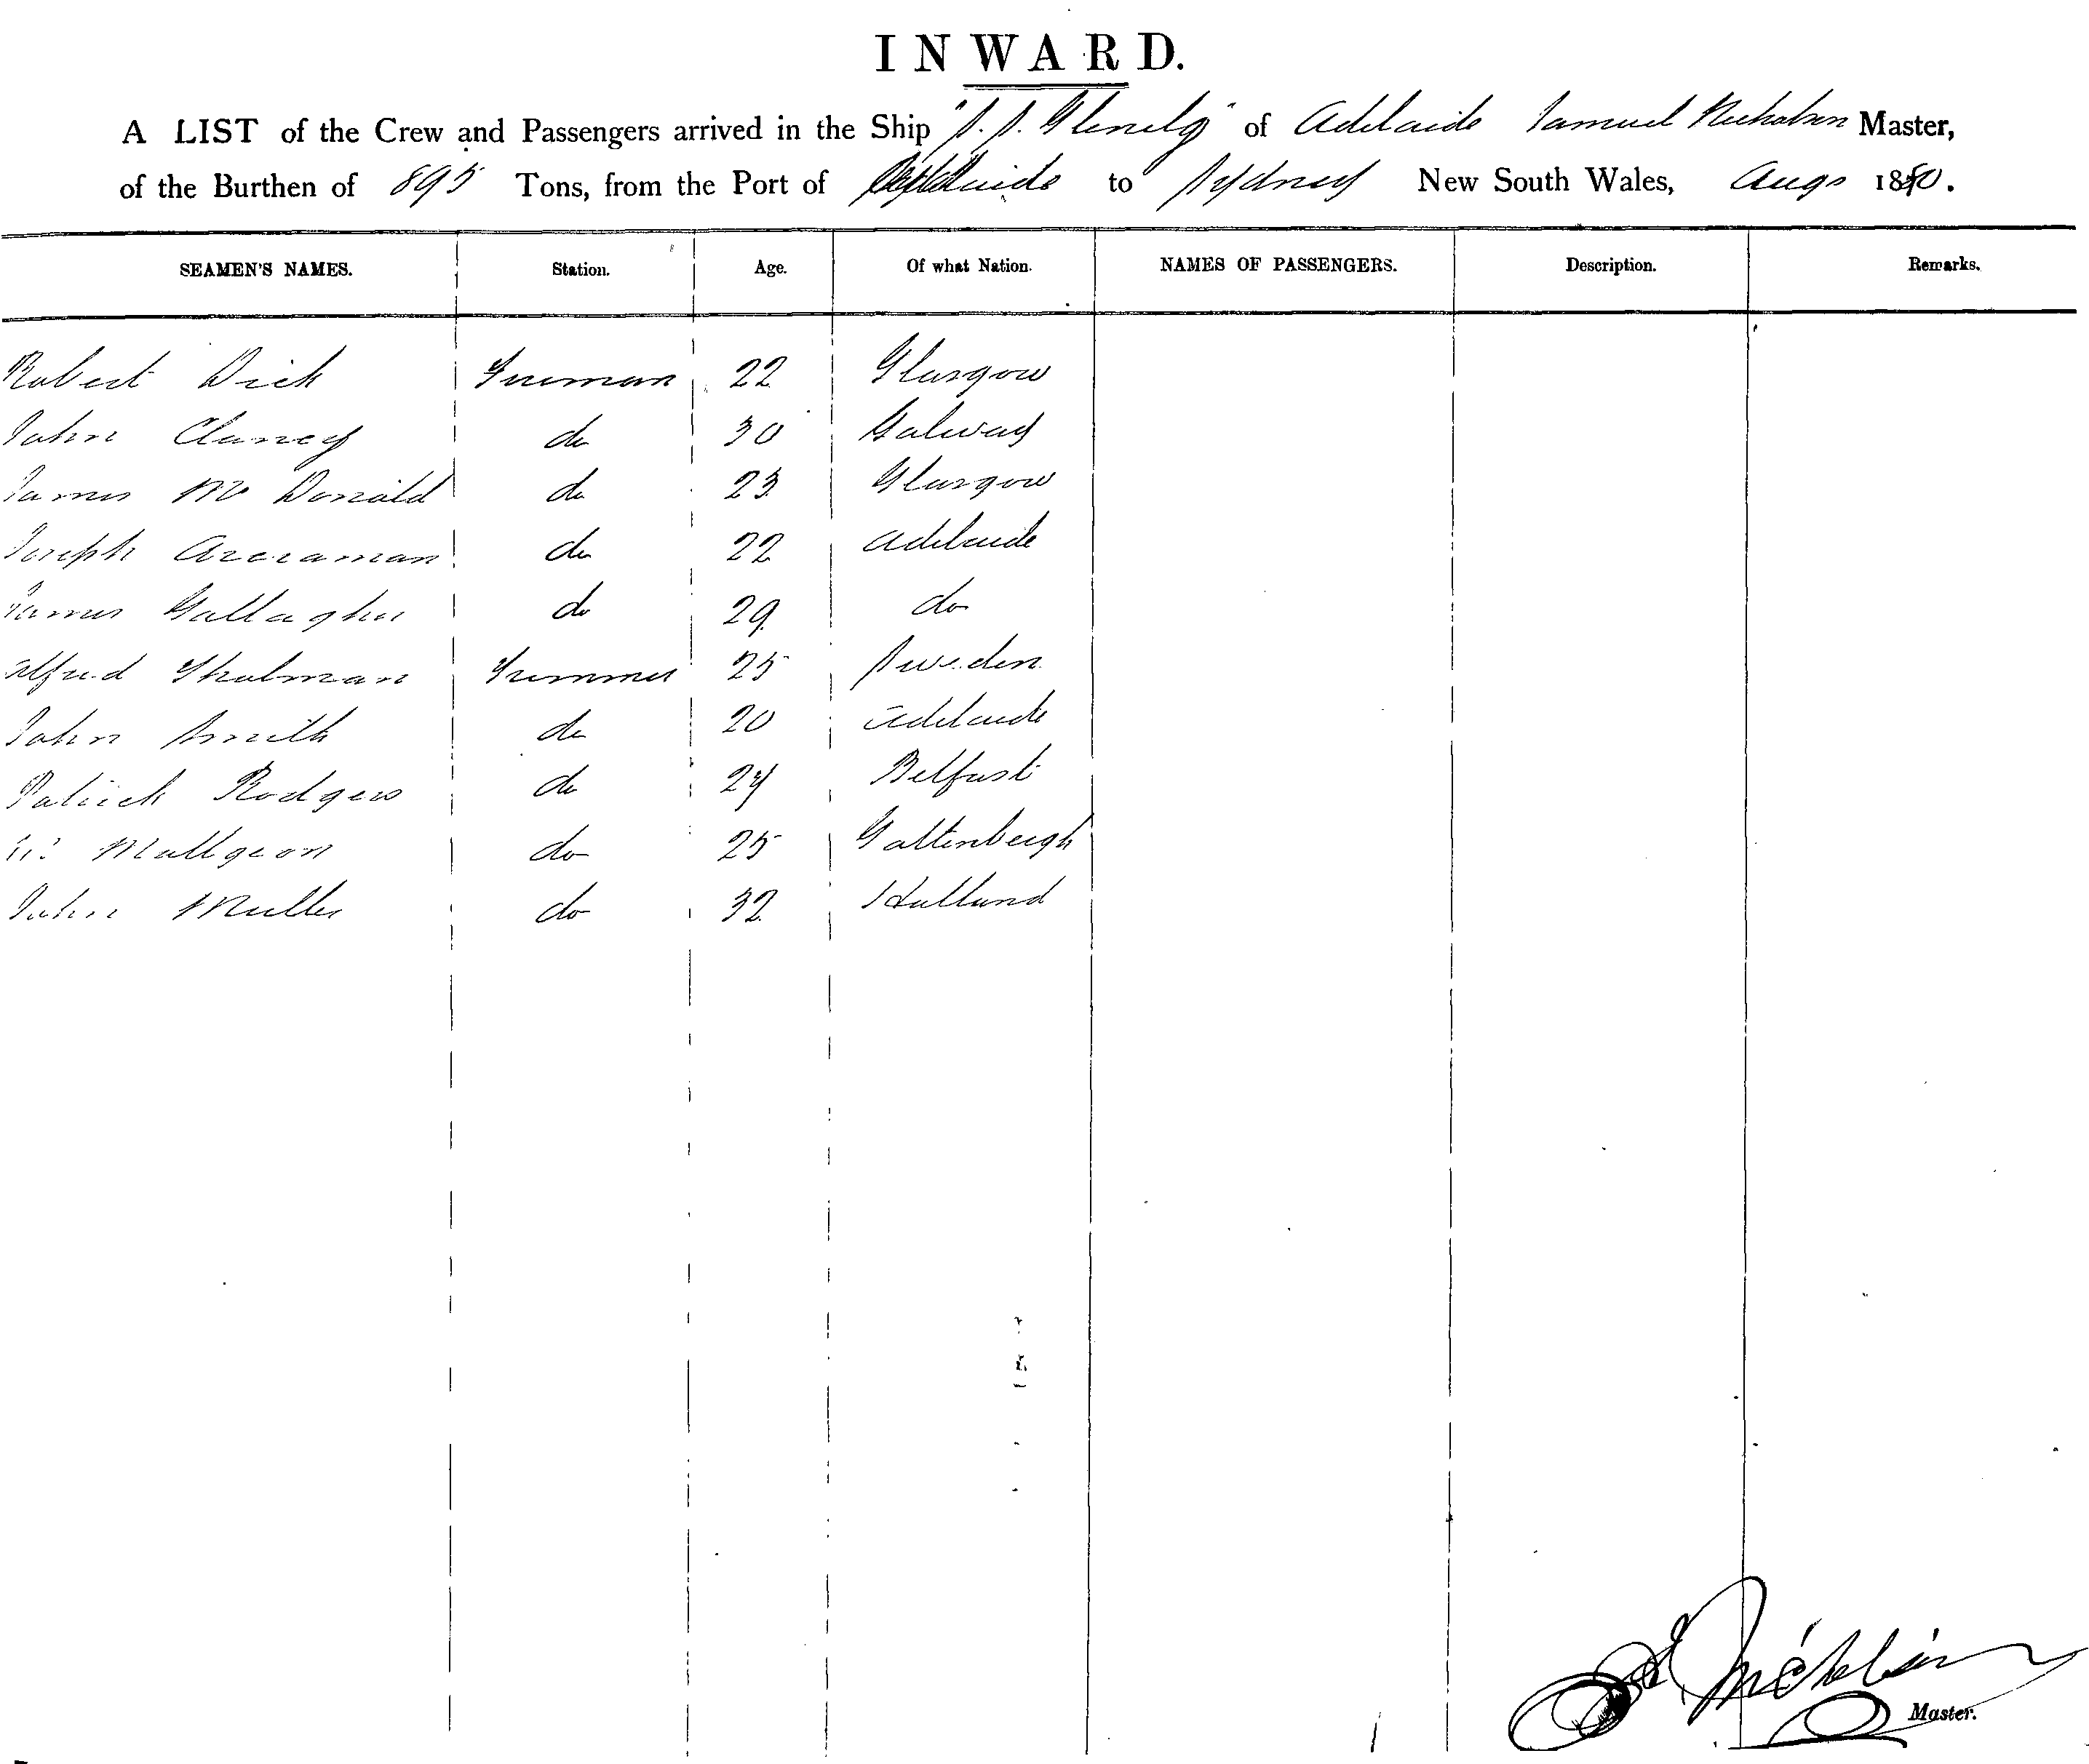 INWARD.
A LIST of the Crew and Passengers arrived in the Ship "S.S. Glenelg" of Adelaide Samuel Nicholson Master,
of the Burthen of 895 Tons, from the Port of Adelaide to Sydney New South Wales, Augo 1880.
SEAMEN'S NAMES. Station. Age. Of what Nation. NAMES OF PASSENGERS. Description. Remarks.
Robert Dick Fireman 22 Glasgow
John Clancy do 30 Galway
James Mc Donald do 23 Glasgow
Joseph do 22 Adelaide
James Gallagher do 29 do
Alfred Trimmer 25 Sweden
John Smith do 20 Adelaide
Patrick Rodgers do 24 Belfast
do 25 Gottenbergh
John Muller do 32 Holland
Master.